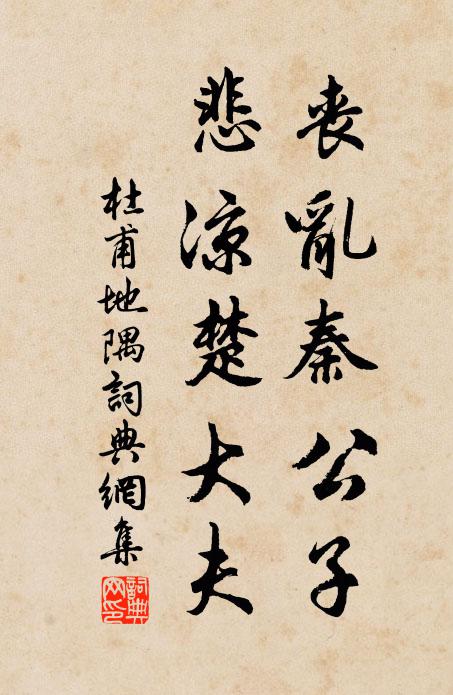 喪亂秦公子
悲涼楚大夫
杜甫地隅詞典網集
詞典网印